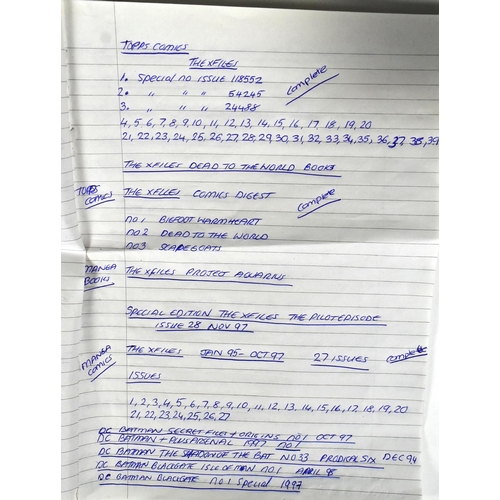 TOPPS COMICS
THE XFILES
1. Special no ISSUE 118552 complete
2. " " " 54245
3. " " " 24488
4, 5, 6, 7, 8, 9, 10, 11, 12, 13, 14, 15, 16, 17, 18, 19, 20
21, 22, 23, 24, 25, 26, 27, 28, 29, 30, 31, 32, 33, 34, 35, 36, 37, 38, 39
THE XFILES DEAD TO THE WORLD BOOKS
TOPPS COMICS THE XFILES COMICS DIGEST complete
NO.1 BIGFOOT WARMHEART
NO 2 DEAD TO THE WORLD
NO 3 SCAPEGOATS
MANGA BOOKS THE XFILES PROJECT AQUARIUS
SPECIAL EDITION THE XFILES THE PILOT EPISODE
ISSUE 28 NOV 97
MANGA COMICS THE XFILES JAN 95 - OCT 97 27 ISSUES complete
ISSUES
1, 2, 3, 4, 5, 6, 7, 8, 9, 10, 11, 12, 13, 14, 15, 16, 17, 18, 19, 20
21, 22, 23, 24, 25, 26, 27
DC BATMAN SECRET FILES + ORIGINS NO.1 OCT 97
DC BATMAN + 1997 NO.1
DC BATMAN THE SHADOW OF THE BAT NO 33 PRODIGAL SIX DEC 94
DC BATMAN BLACKGATE ISLE OF MEN NO.1 APRIL 98
DC BATMAN BLACKGATE NO.1 Special 1997